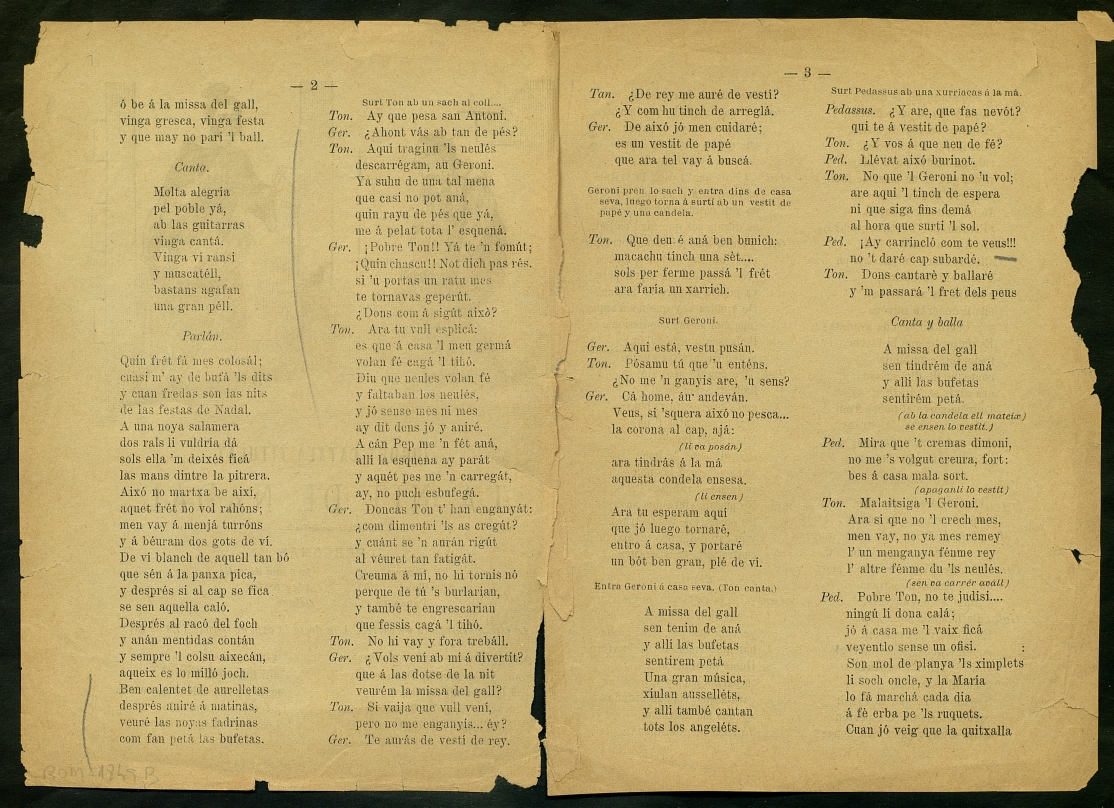 — 2 —
ó be á la missa del gall,
vinga gresca, vinga festa
y que may no pari 'l ball.
Canta.
Molta alegria
pel poble yá,
ab las guitarras
vinga cantá.
Vinga vi ransi
y muscatéll,
bastans agafan
una gran péll.
Parlán.
Quin frét fá mes colosál;
cuasi m' ay de bufá 'ls dits
y cuan fredas son las nits
de las festas de Nadal.
A una noya salamera
dos rals li vuldría dá
sols ella 'm deixés ficá
las mans dintre la pitrera.
Aixó no martxa be aixi,
aquet frét no vol rahóns;
men vay á menjá turróns
y á béuram dos gots de ví.
De vi blanch de aquell tan bó
que sén á la panxa pica,
y després si al cap se fica
se sen aquella caló.
Després al racó del foch
y anán mentidas contán
y sempre 'l colsu aixecán,
aqueix es lo milló joch.
Ben calentet de aurelletas
després aniré á matinas,
veuré las noyas fadrinas
com fan petá las bufetas.
Surt Ton ab un sach al coll....
Ton. Ay que pesa san Antoni.
Ger. ¿Ahont vás ab tan de pés?
Ton. Aquí traginu 'ls neulés
descarrégam, au Geroni.
Ya suhu de una tal mena
que casi no pot aná,
quin rayu de pés que yá,
me á pelat tota l' esquená.
Ger. ¡Pobre Ton!! Yá te 'n fomút;
¡Quin chascu!! Not dich pas rés.
si 'u portas un ratu mes
te tornavas geperút.
¿Dons com á sigút aixó?
Ton. Ara tu vull esplicá:
es que á casa 'l meu germá
volan fé cagá 'l tihó.
Diu que neules volan fé
y faltaban los neulés,
y jó sense mes ni mes
ay dit dons jó y aniré.
A cán Pep me 'n fét aná,
alli la esquena ay parát
y aquét pes me 'n carregát,
ay, no puch esbufegá.
Ger. Doncas Ton t' han enganyát:
¿com dimontri 'ls as cregút?
y cuánt se 'n aurán rigút
al véuret tan fatigát.
Creuma á mí, no hi tornis nó
perque de tú 's burlarian,
y també te engrescarian
que fessis cagá 'l tihó.
Ton. No hi vay y fora trebáll.
Ger. ¿Vols vení ab mí á divertit?
que á las dotse de la nit
veurém la missa del gall?
Ton. Si vaija que vull vení,
pero no me enganyis... éy?
Ger. Te aurás de vestí de rey.
— 3 —
Tan. ¿De rey me auré de vesti?
¿Y com hu tinch de arreglá.
Ger. De aixó jó men cuidaré;
es un vestit de papé
que ara tel vay á buscá.
Geroni pren lo sach y entra dins de casa
seva, luego torna á surtí ab un vestit de
papé y una candela.
Ton. Que deu é aná ben bunich:
macachu tinch una sèt....
sols per ferme passá 'l frét
ara faria un xarrich.
Surt Geroni.
Ger. Aqui está, vestu pusán.
Ton. Pósamu tú que 'u enténs.
¿No me 'n ganyis are, 'u sens?
Ger. Cá home, áu' andeván.
Veus, si 'squera aixó no pesca...
la corona al cap, ajá:
(li va posán)
ara tindrás á la má
aquesta condela ensesa.
(li ensen)
Ara tu esperam aqui
que jó luego tornaré,
entro á casa, y portaré
un bót ben gran, plé de vi.
Entra Geroni á casa seva. (Ton canta.)
A missa del gall
sen tenim de aná
y alli las bufetas
sentirem petá
Una gran música,
xiulan ausselléts,
y alli també cantan
tots los angeléts.
Surt Pedassus ab una xurriacas á la má.
Pedassus. ¿Y are, que fas nevót?
qui te á vestit de papé?
Ton. ¿Y vos á que neu de fé?
Ped. Llévat aixó burinot.
Ton. No que 'l Geroni no 'u vol;
are aqui 'l tinch de espera
ni que siga fins demá
al hora que surti 'l sol.
Ped. ¡Ay carrincló com te veus!!!
no 't daré cap subardé.
Ton. Dons cantaré y ballaré
y 'm passará 'l fret dels peus
Canta y balla
A missa del gall
sen tindrém de aná
y alli las bufetas
sentirém petá.
(ab la candela ell mateix)
se ensen lo vestit.)
Ped. Mira que 't cremas dimoni,
no me 's volgut creura, fort:
bes á casa mala sort.
(apaganli lo vestit)
Ton. Malaitsiga 'l Geroni.
Ara si que no 'l crech mes,
men vay, no ya mes remey
l' un menganya fénme rey
l' altre fénme du 'ls neulés.
(sen va carrér aváll)
Ped. Pobre Ton, no te judisi....
ningú li dona calá;
jó á casa me 'l vaix ficá
veyentlo sense un ofisi.
Son mol de planya 'ls ximplets
li soch oncle, y la María
lo fá marchá cada dia
á fè erba pe 'ls ruquets.
Cuan jó veig que la quitxalla